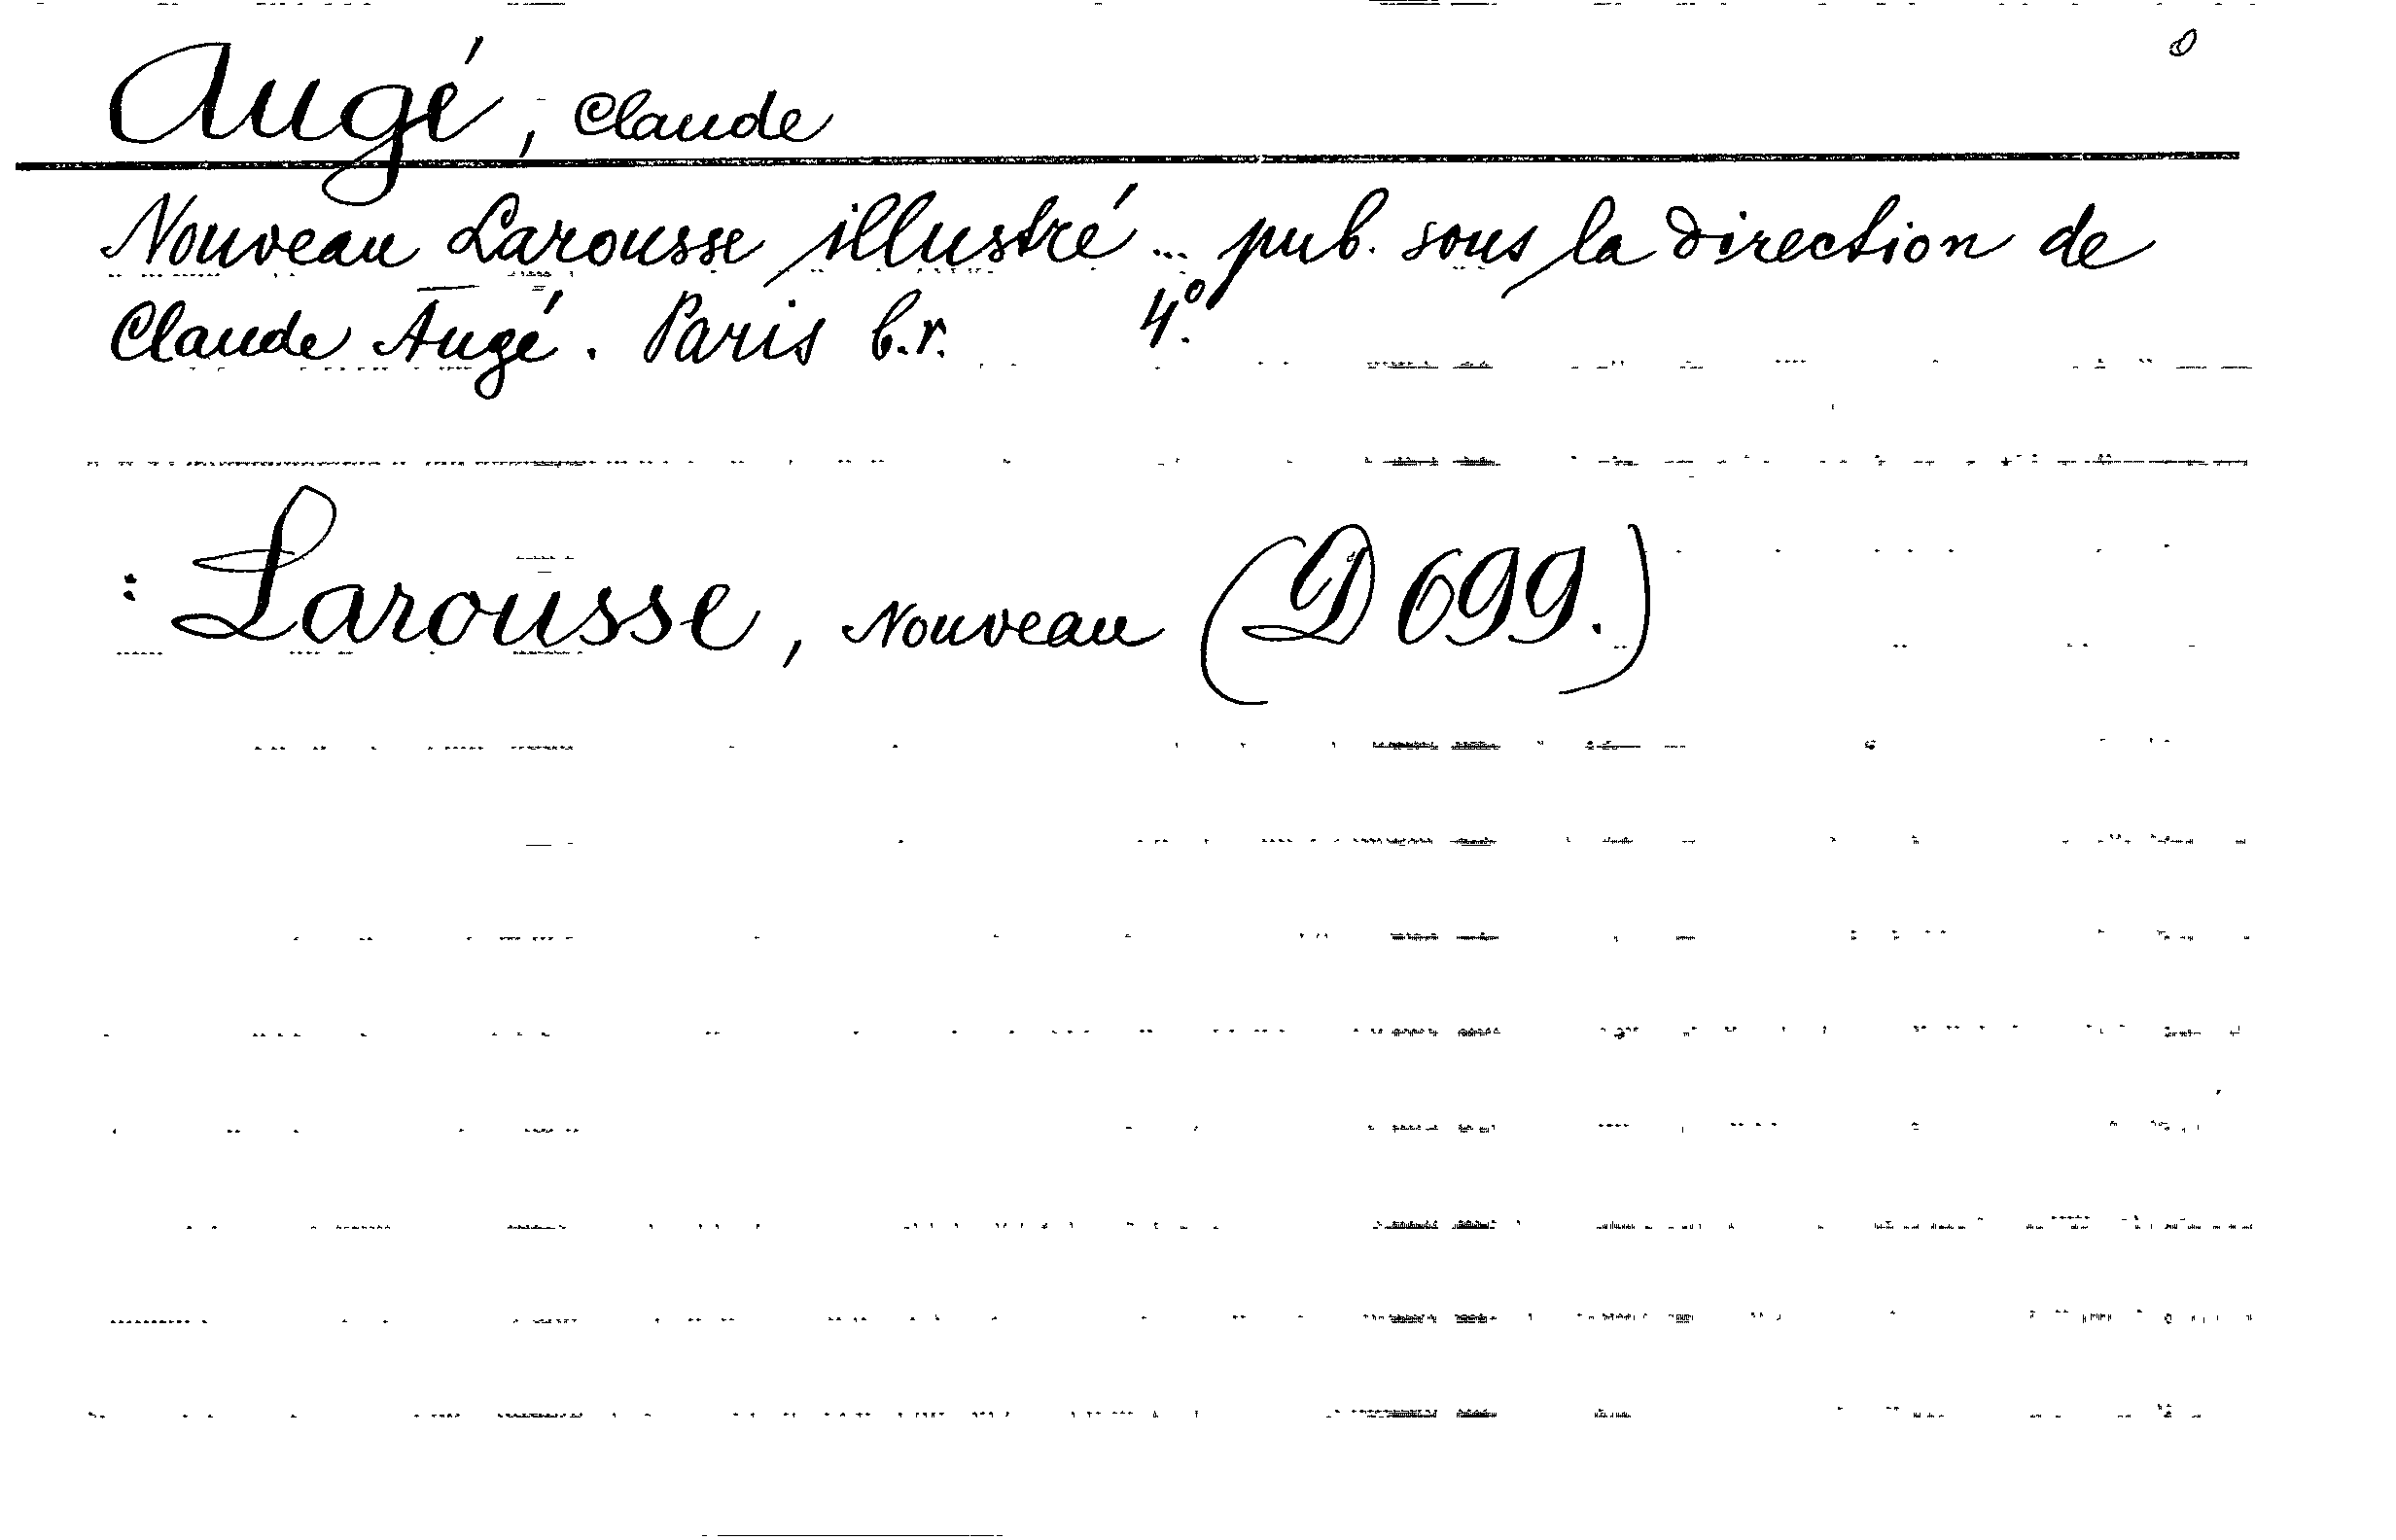 Augé, Claude
Nouveau Larousse illustré ... pub. sous la direction de
Claude Augé. Paris b.r. 4º.
: Larousse, Nouveau (D 699.)